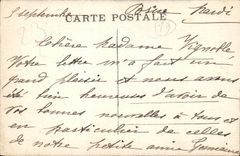 5 septembre
CARTE POSTALE
Mardi
Chère Madame Vignolle
Votre lettre m'a fait un
grand plaisir et nous avons
été bien heureuses d'avoir de
vos bonnes nouvelles à tous et
en particulier de celles
de notre petite amie Germaine